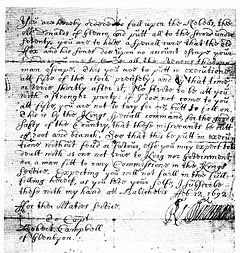 You are hereby ordered to fall upon the Rebells, the
McDonalds of Glenco, and putt all to the sword under
seventy. you are to have a speciall care that the old
Fox and his sones doe upon no account escape your
hands, you are to secure all the avenues that no
man escape. This you are to putt in execution
att fyve of the clock precisely; and by that time
or very shortly after it, I'll strive to be att you
with a stronger party: if I doe not come to you
att fyve, you are not to tarry for me, butt to fall on.
This is by the Kings speciall command, for the good &
safty of the Country, that these miscreants be cutt
off root and branch. See that this be putt in execu-
tion without feud or favour, else you may expect to be
dealt with as one not true to King nor Government,
nor a man fitt to cary Commissione in the Kings
service. Expecting you will not faill in the full-
filling hereof, as you love your selfe, I subscribe
these with my hand att Balicholis Feb: 12, 1692
For their Maties service
To Capt
Robert Campbell
of Glenlyon